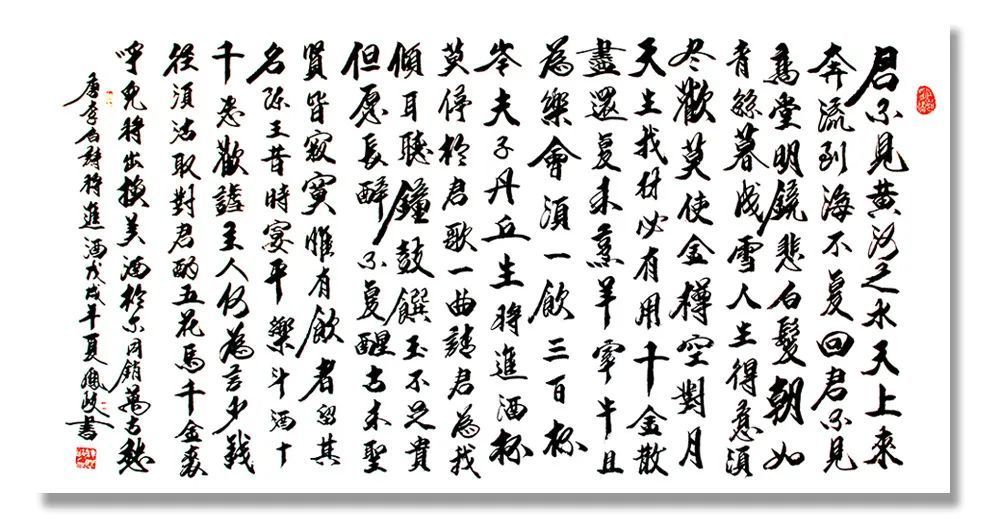 君不見黃河之水天上來
奔流到海不复回君不見
高堂明鏡悲白髮朝如
青絲暮成雪人生得意須
尽歡莫使金樽空對月
天生我材必有用千金散
盡還复来烹羊宰牛且
為樂會須一飲三百杯
岑夫子丹丘生將進酒杯
莫停於君歌一曲請君為我
傾耳聽鐘鼓饌玉不足貴
但愿長醉不复醒古来聖
賢皆寂寞惟有飲者留其
名陈王昔時宴平樂斗酒十
千恣歡謔主人何為言少錢
徑須沽取對君酌五花馬千金裘
呼兒將出換美酒於尔同銷萬古愁
唐李白詩將進酒戊戌年夏書